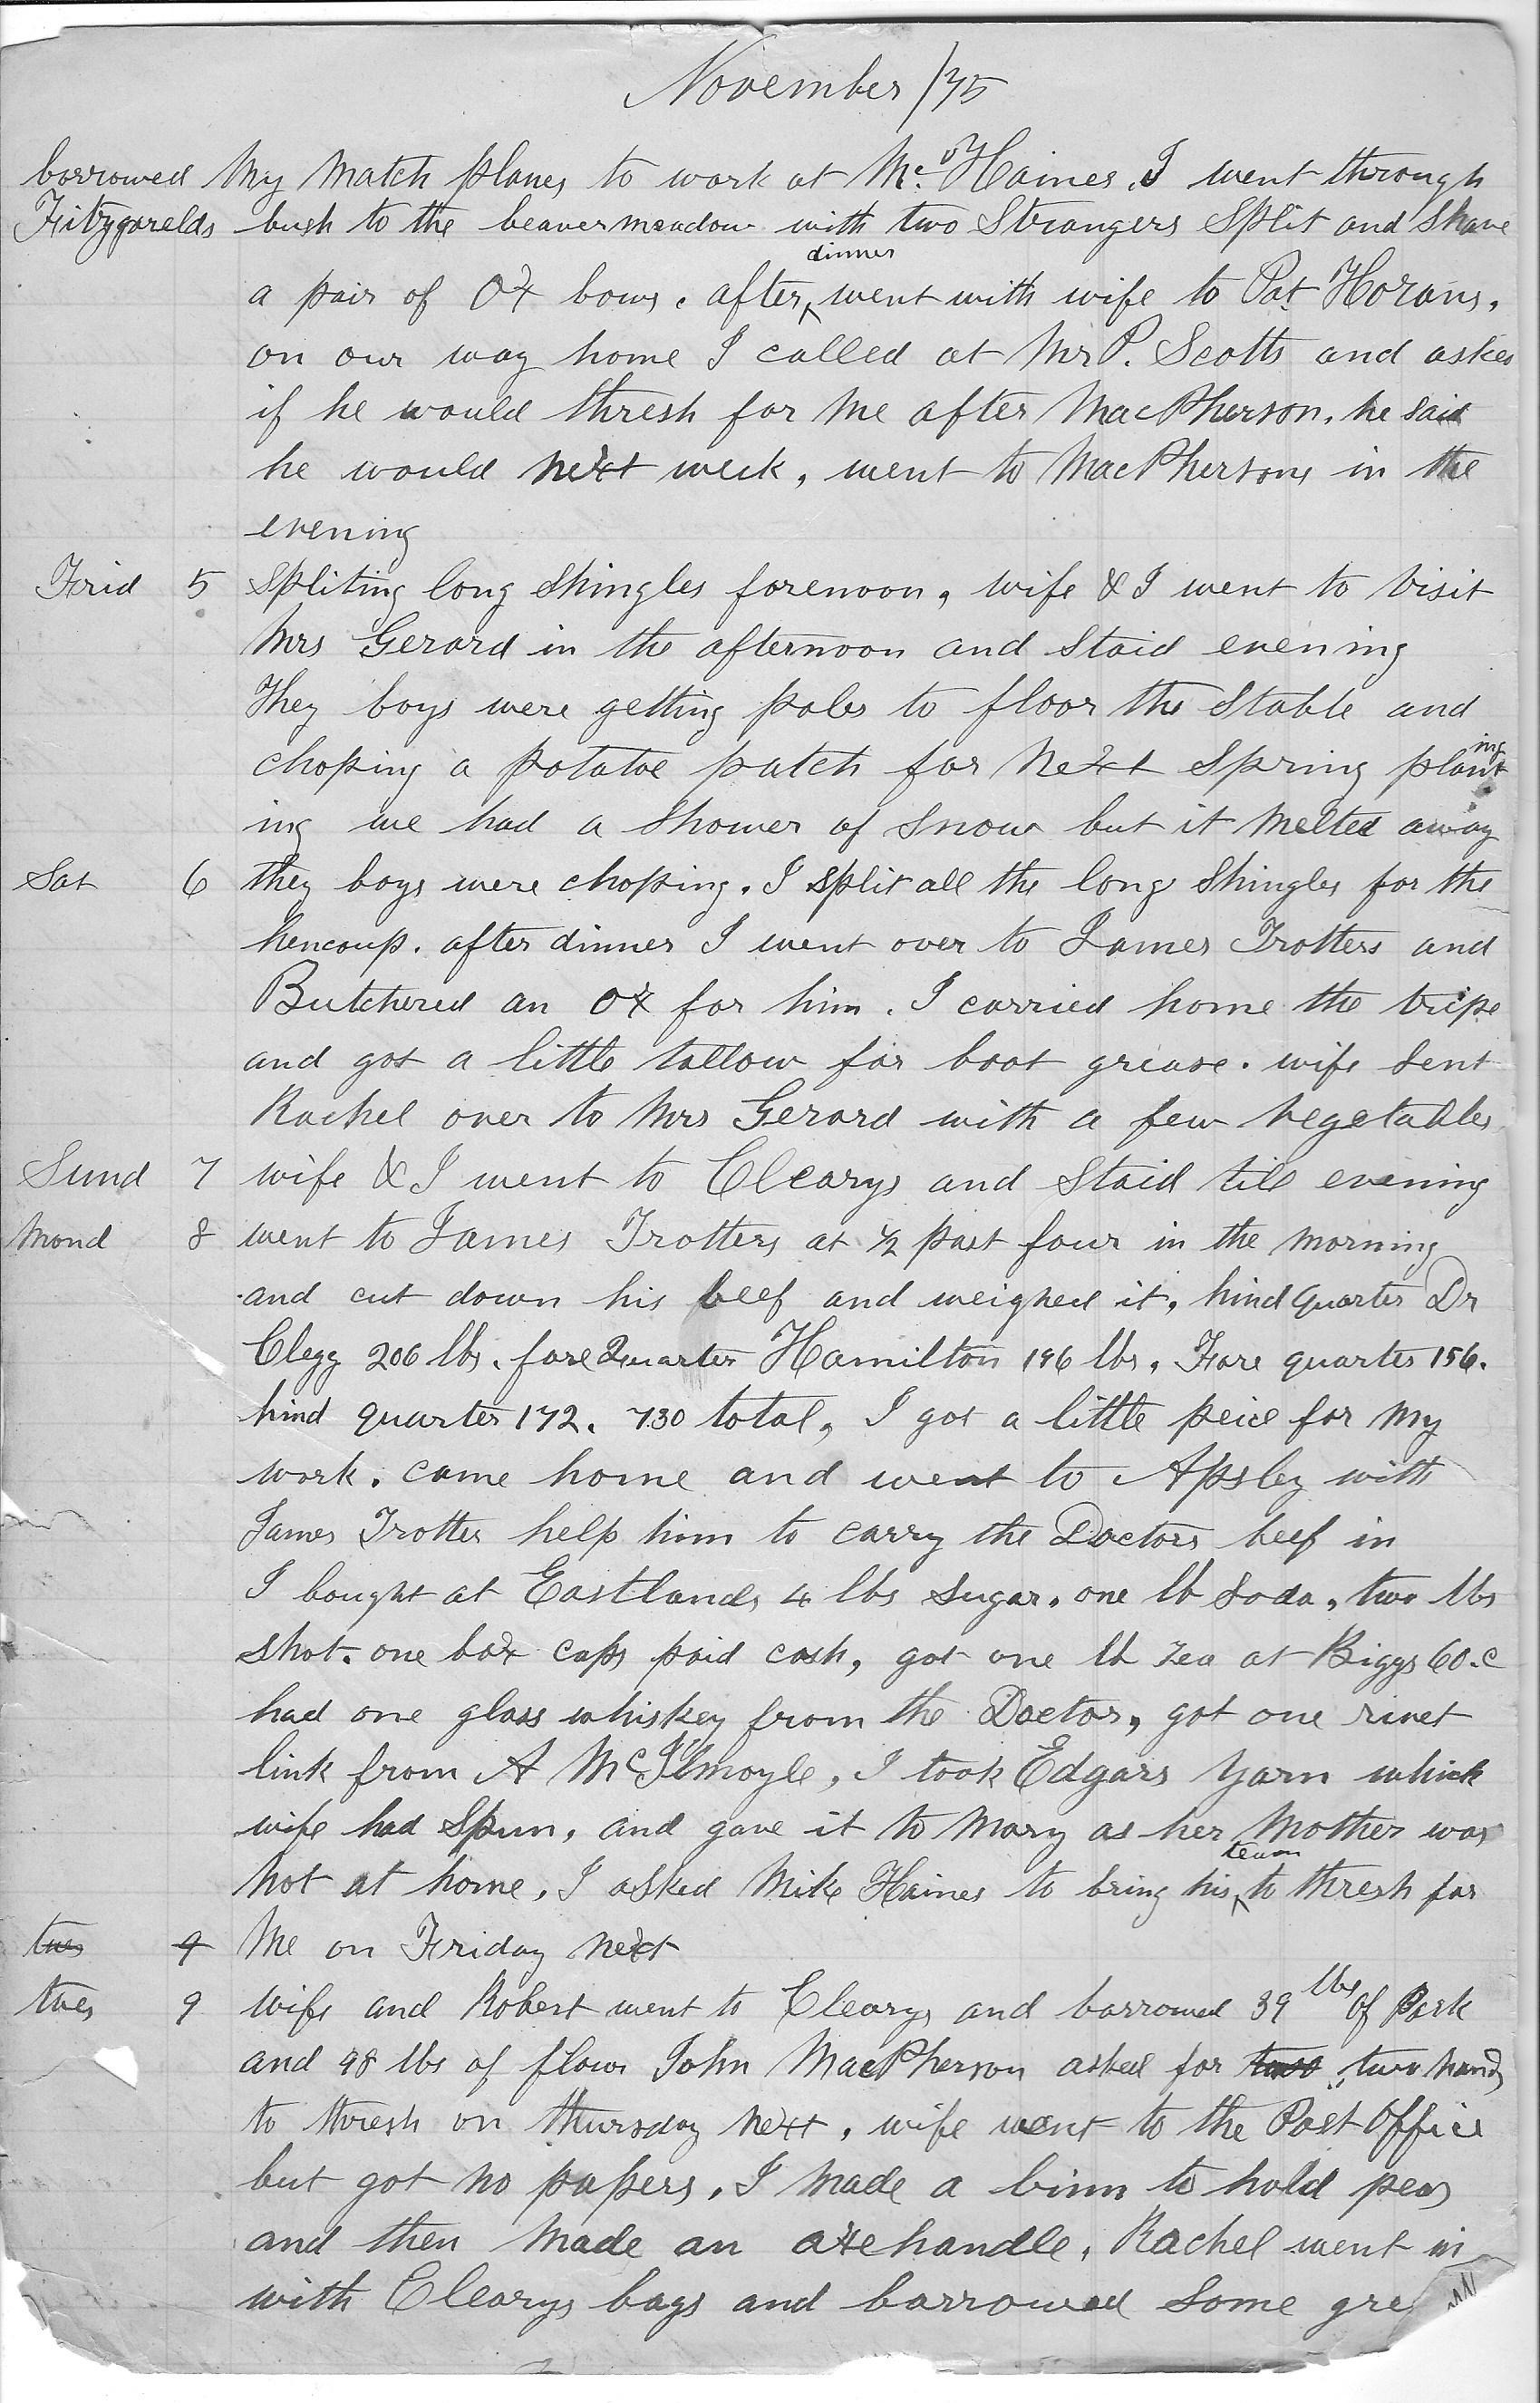 November /75
borrowed my match planes to work at Mc.Haines, I went through
Fitzgarelds bush to the beaver meadow with two Strangers Split and Shave
dinner
a pair of Ox bows. after ^ went with wife to Pat Horans,
on our way home I called at Mr P. Scotts and asked
if he would thresh for me after MacPherson, he said
he would next week, went to MacPhersons in the
evening
Frid 5 Spliting long Shingles forenoon, wife & I went to Visit
Mrs Gerard in the afternoon and Staid evening
They boys were getting poles to floor the Stable and
choping a potatoe patch for next Spring planting
ing we had a Shower of Snow but it melted away
Sat 6 they boys were choping. I split all the long Shingles for the
hencoup. after dinner I went over to James Trotters and
Butchered an Ox for him. I carried home the tripe
and got a little tallow for boot grease. wife Sent
Rachel over to Mrs Gerard with a few vegetables
Sund 7 wife & I went to Clearys and Staid till evening
Mond 8 went to James Trotters at ½ past four in the morning
and cut down his beef and weighed it, hind quarter Dr
Clegg 206 lbs. fore Quarter Hamilton 196 lbs, Fore quarter 156.
hind quarter 172. 730 total, I got a little peice for my
work. came home and went to Apsley with
James Trotter help him to carry the Doctors beef in
I bought at Eastlands 4 lbs Sugar, one lb Soda, two lbs
shot. one box caps paid cash, got one lb Tea at Biggs 60.c
had one glass whiskey from the Doctor, got one rivet
link from A McIlmoyle, I took Edgars yarn which
wife had Spun, and gave it to Mary as her Mother was
team
not at home, I asked Mike Haines to bring his ^ to thresh for
tues 9 me on Friday next
tues 9 wife and Robert went to Clearys and borrowed 39 lbs of Pork
and 98 lbs of flour John MacPherson asked for two two hands
to thresh on thursday next, wife went to the Post Office
but got no papers, I made a binn to hold peas
and then made an axehandle, Rachel went in
with Clearys bags and borrowed some